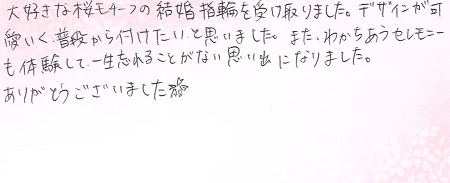 大好きな桜モチーフの結婚指輪を受け取りました。デザインが可
愛いく、普段から付けたいと思いました。また、わかちあうセレモニー
も体験して、一生忘れることがない思い出になりました。
ありがとうございました